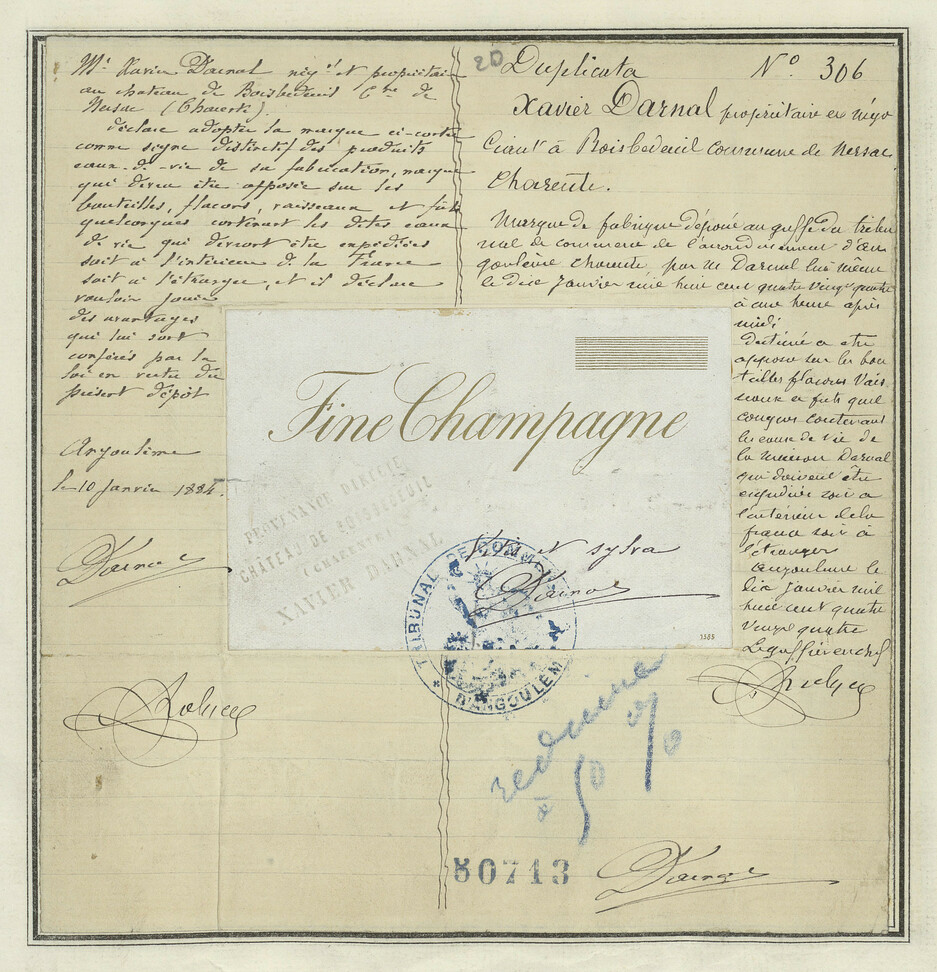 Mr Xavier Darnal négt et propriétaire
au chateau de Boisbedeuil Cne de
Nersac (Charente)
déclare adopter la marque ci-contre
comme signe distinctif des produits
eaux-de-vie de sa fabrication, marque
qui devra être apposée sur les
bouteilles, flacons, vaisseaux et fûts
quelconques contenant les dites eaux
de vie qui devront être expédiées
soit à l'intérieur de la France
soit à l'étranger, et il déclare
vouloir jouir
des avantages
qui lui sont
conférés par la
loi en vertu du
présent dépôt
Angoulême
le 10 janvier 1884.
Darnal
20 Duplicata No 306
Xavier Darnal propriétaire et négo
ciant à Boisbedeuil commune de Nersac
Charente.
Marque de fabrique déposée au greffe du tribu
nal de commerce de l'arrondissement d'an
goulême charente, par M Darnal lui même
le dix janvier mil huit cent quatre vingt quatre
à une heure après
midi
Destinée a etre
apposée sur les bou
teilles flacons vais
seaux et futs quel
conques contenant
les eaux de vie de
la maison Darnal
qui doivent être
expédiées soit a
l'intérieur de la
france soit à
l'étranger
angoulême le
dix janvier mil
huit cent quatre
vingt quatre
Le greffier en chef
Fine Champagne
PROVENANCE DIRECTE
CHÂTEAU DE BOISBEDEUIL
(CHARENTE)
XAVIER DARNAL
Darnal
1355
TRIBUNAL DE COMMERCE
D'ANGOULEME
redui
à 50 %
50713
Darnal